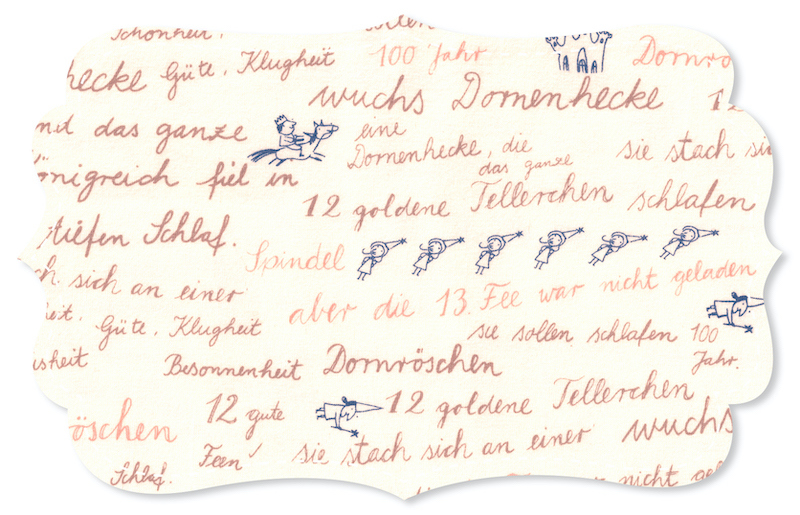 Schönheit,
100 Jahr
Dornrö
hecke Güte, Klugheit
wuchs Dornenhecke
12
und das ganze
eine
Dornenhecke, die
das ganze
sie stach sich
önigreich fiel in
12 goldene Tellerchen schlafen
tiefen Schlaf.
Spindel
ch sich an einer
aber die 13. Fee war nicht geladen
eit, Güte, Klugheit
sie sollen schlafen 100
Jahr.
isheit
Besonnenheit Dornröschen
12 goldene Tellerchen
öschen
12 gute
Feen
sie stach sich an einer
wuchs
Schlaf.
nicht gel